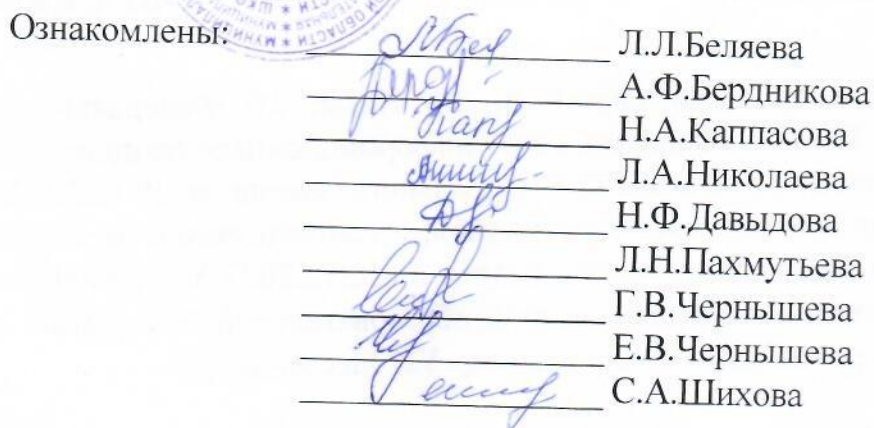 Ознакомлены:
Л.Л.Беляева
А.Ф.Бердникова
Н.А.Каппасова
Л.А.Николаева
Н.Ф.Давыдова
Л.Н.Пахмутьева
Г.В.Чернышева
Е.В.Чернышева
С.А.Шихова